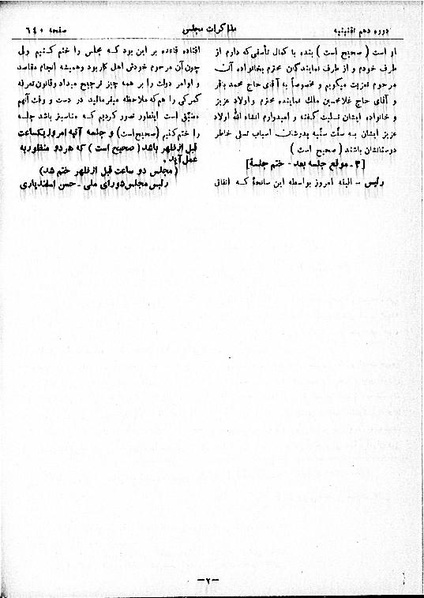 دوره دهم تقنینیه
مذاکرات مجلس
صفحه ٦٤٠
او است (صحیح است) بنده با کمال تأسفی که دارم از
طرف خودم و از طرف نمایندگان محترم بخانواده آن
مرحوم تعزیت میگویم و خصوصاً به آقای حاج محمد باقر
و آقای حاج غلامحسین ملک نماینده محترم و اولاد عزیز
و خانواده ایشان تسلیت گفته و امیدوارم انشاء الله اولاد
عزیز ایشان به سنیه پدرشان اسباب تسلی خاطر
دوستانشان باشند (صحیح است)
[٣ - موقع جلسه بعد - ختم جلسه]
رئیس - البته امروز بواسطه این سانحهٔ که اتفاق
افتاده قاعده بر این بود که مجلس را ختم کنیم ولی
چون آن مرحوم خودش اهل کار بود و همیشه انجام مقاصد
و اوامر دولت را بر همه چیز ترجیح میداد و قانون تعرفه
گمرکی را هم که ملاحظه میفرمائید در دست و وقت آنهم
مضیق است اینطور تصور کردیم که مناسبتر باشد جلسه
را ختم کنیم (صحیح است) و جلسه آتیه امروز یکساعت
قبل از ظهر باشد (صحیح است) که هر دو منظور به
عمل آید.
(مجلس دو ساعت قبل از ظهر ختم شد)
رئیس مجلس شورای ملی - حسن اسفندیاری
—٢—